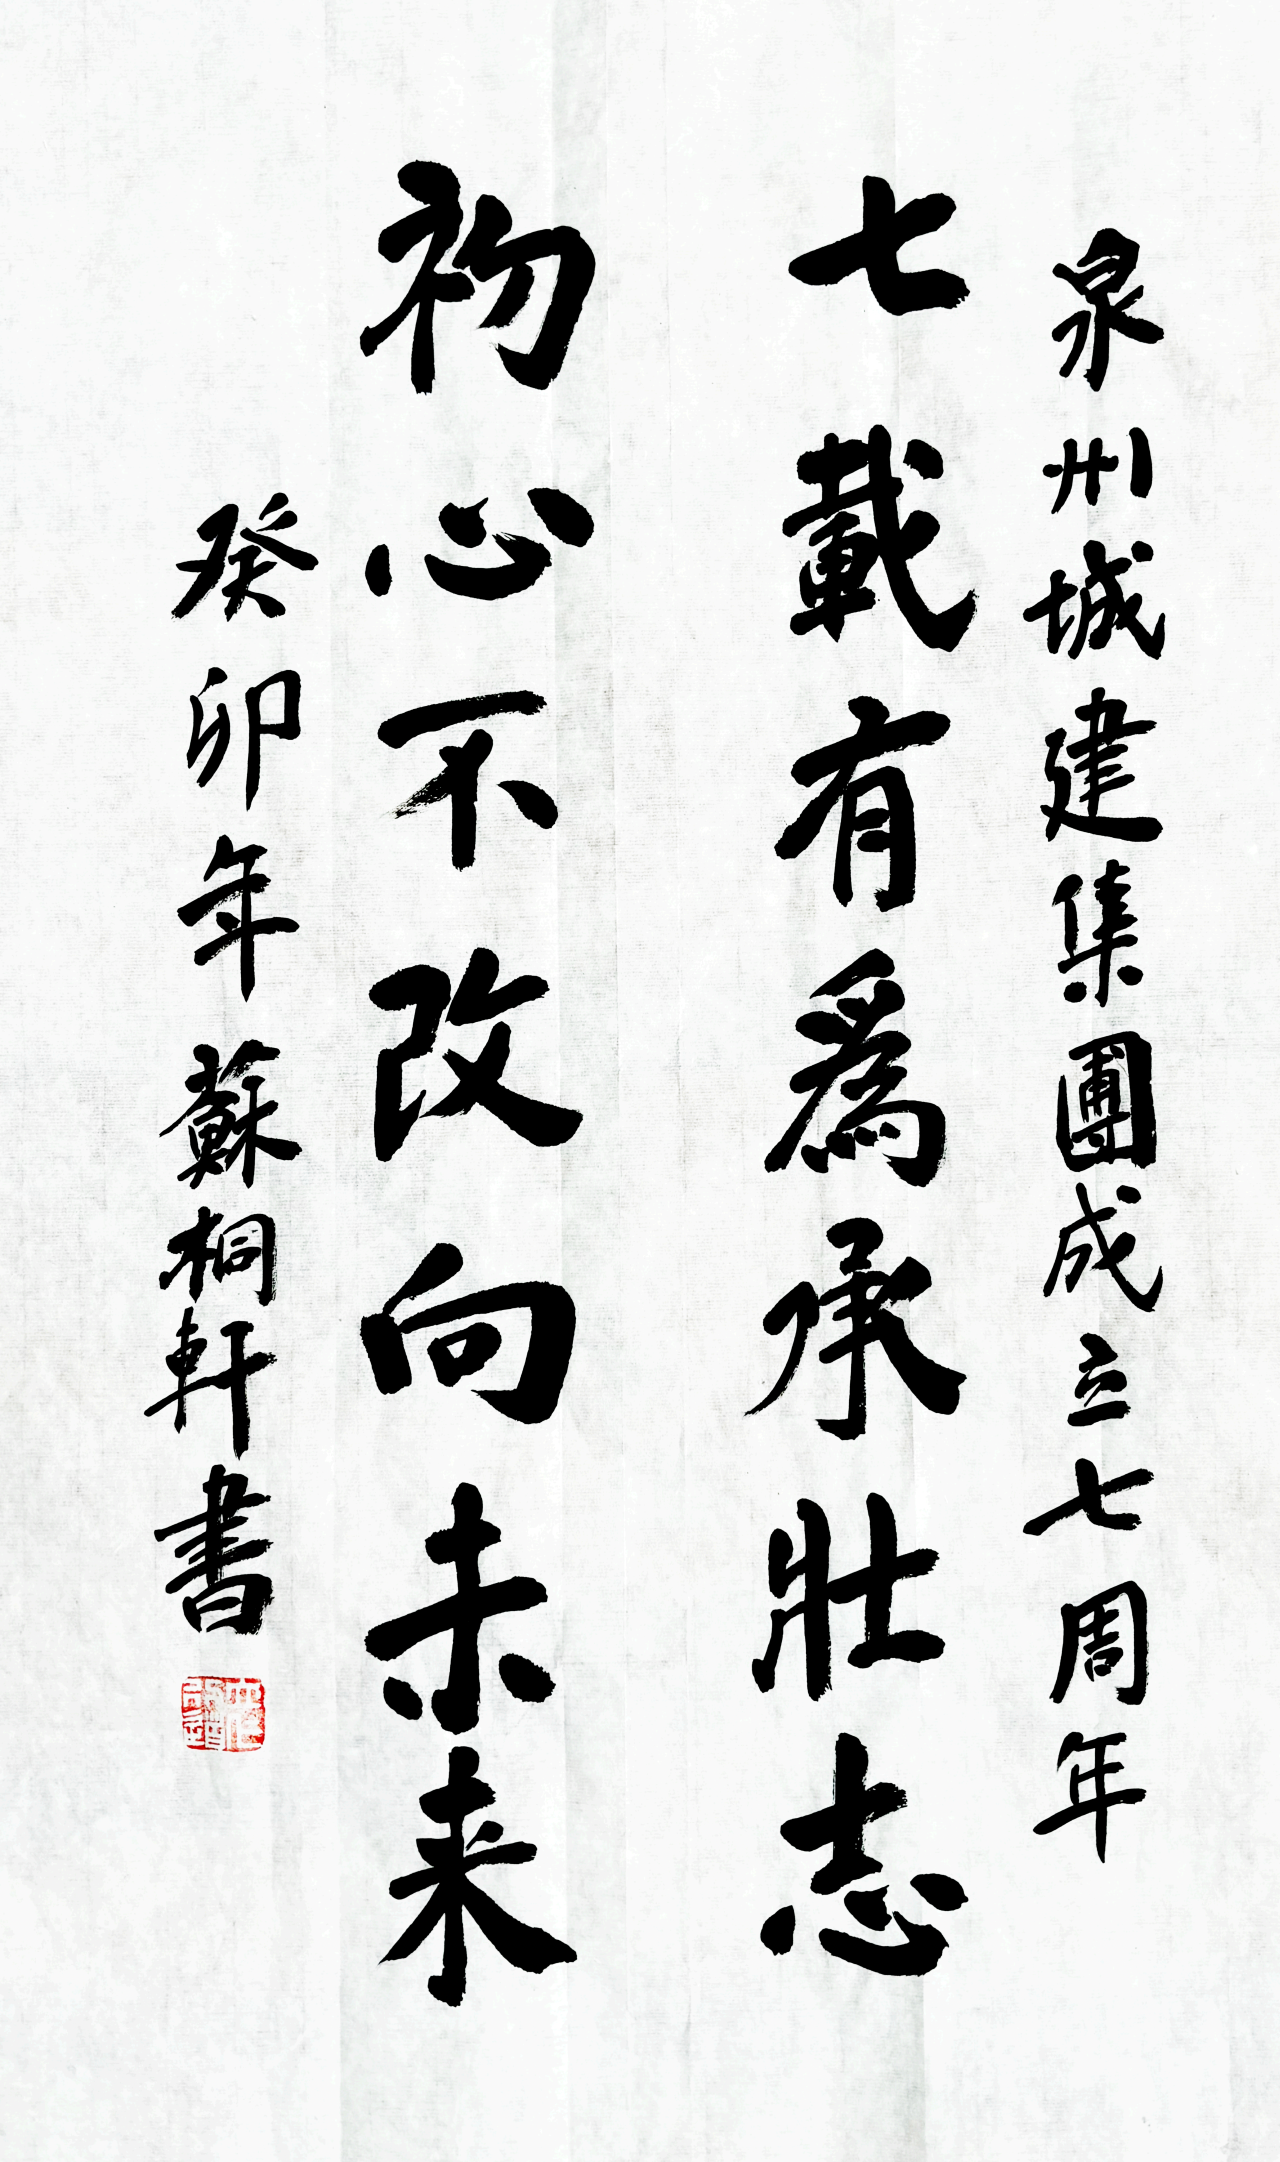 泉州城建集團成立七周年
七載有爲承壯志
初心不改向未来
癸卯年蘇桐軒書